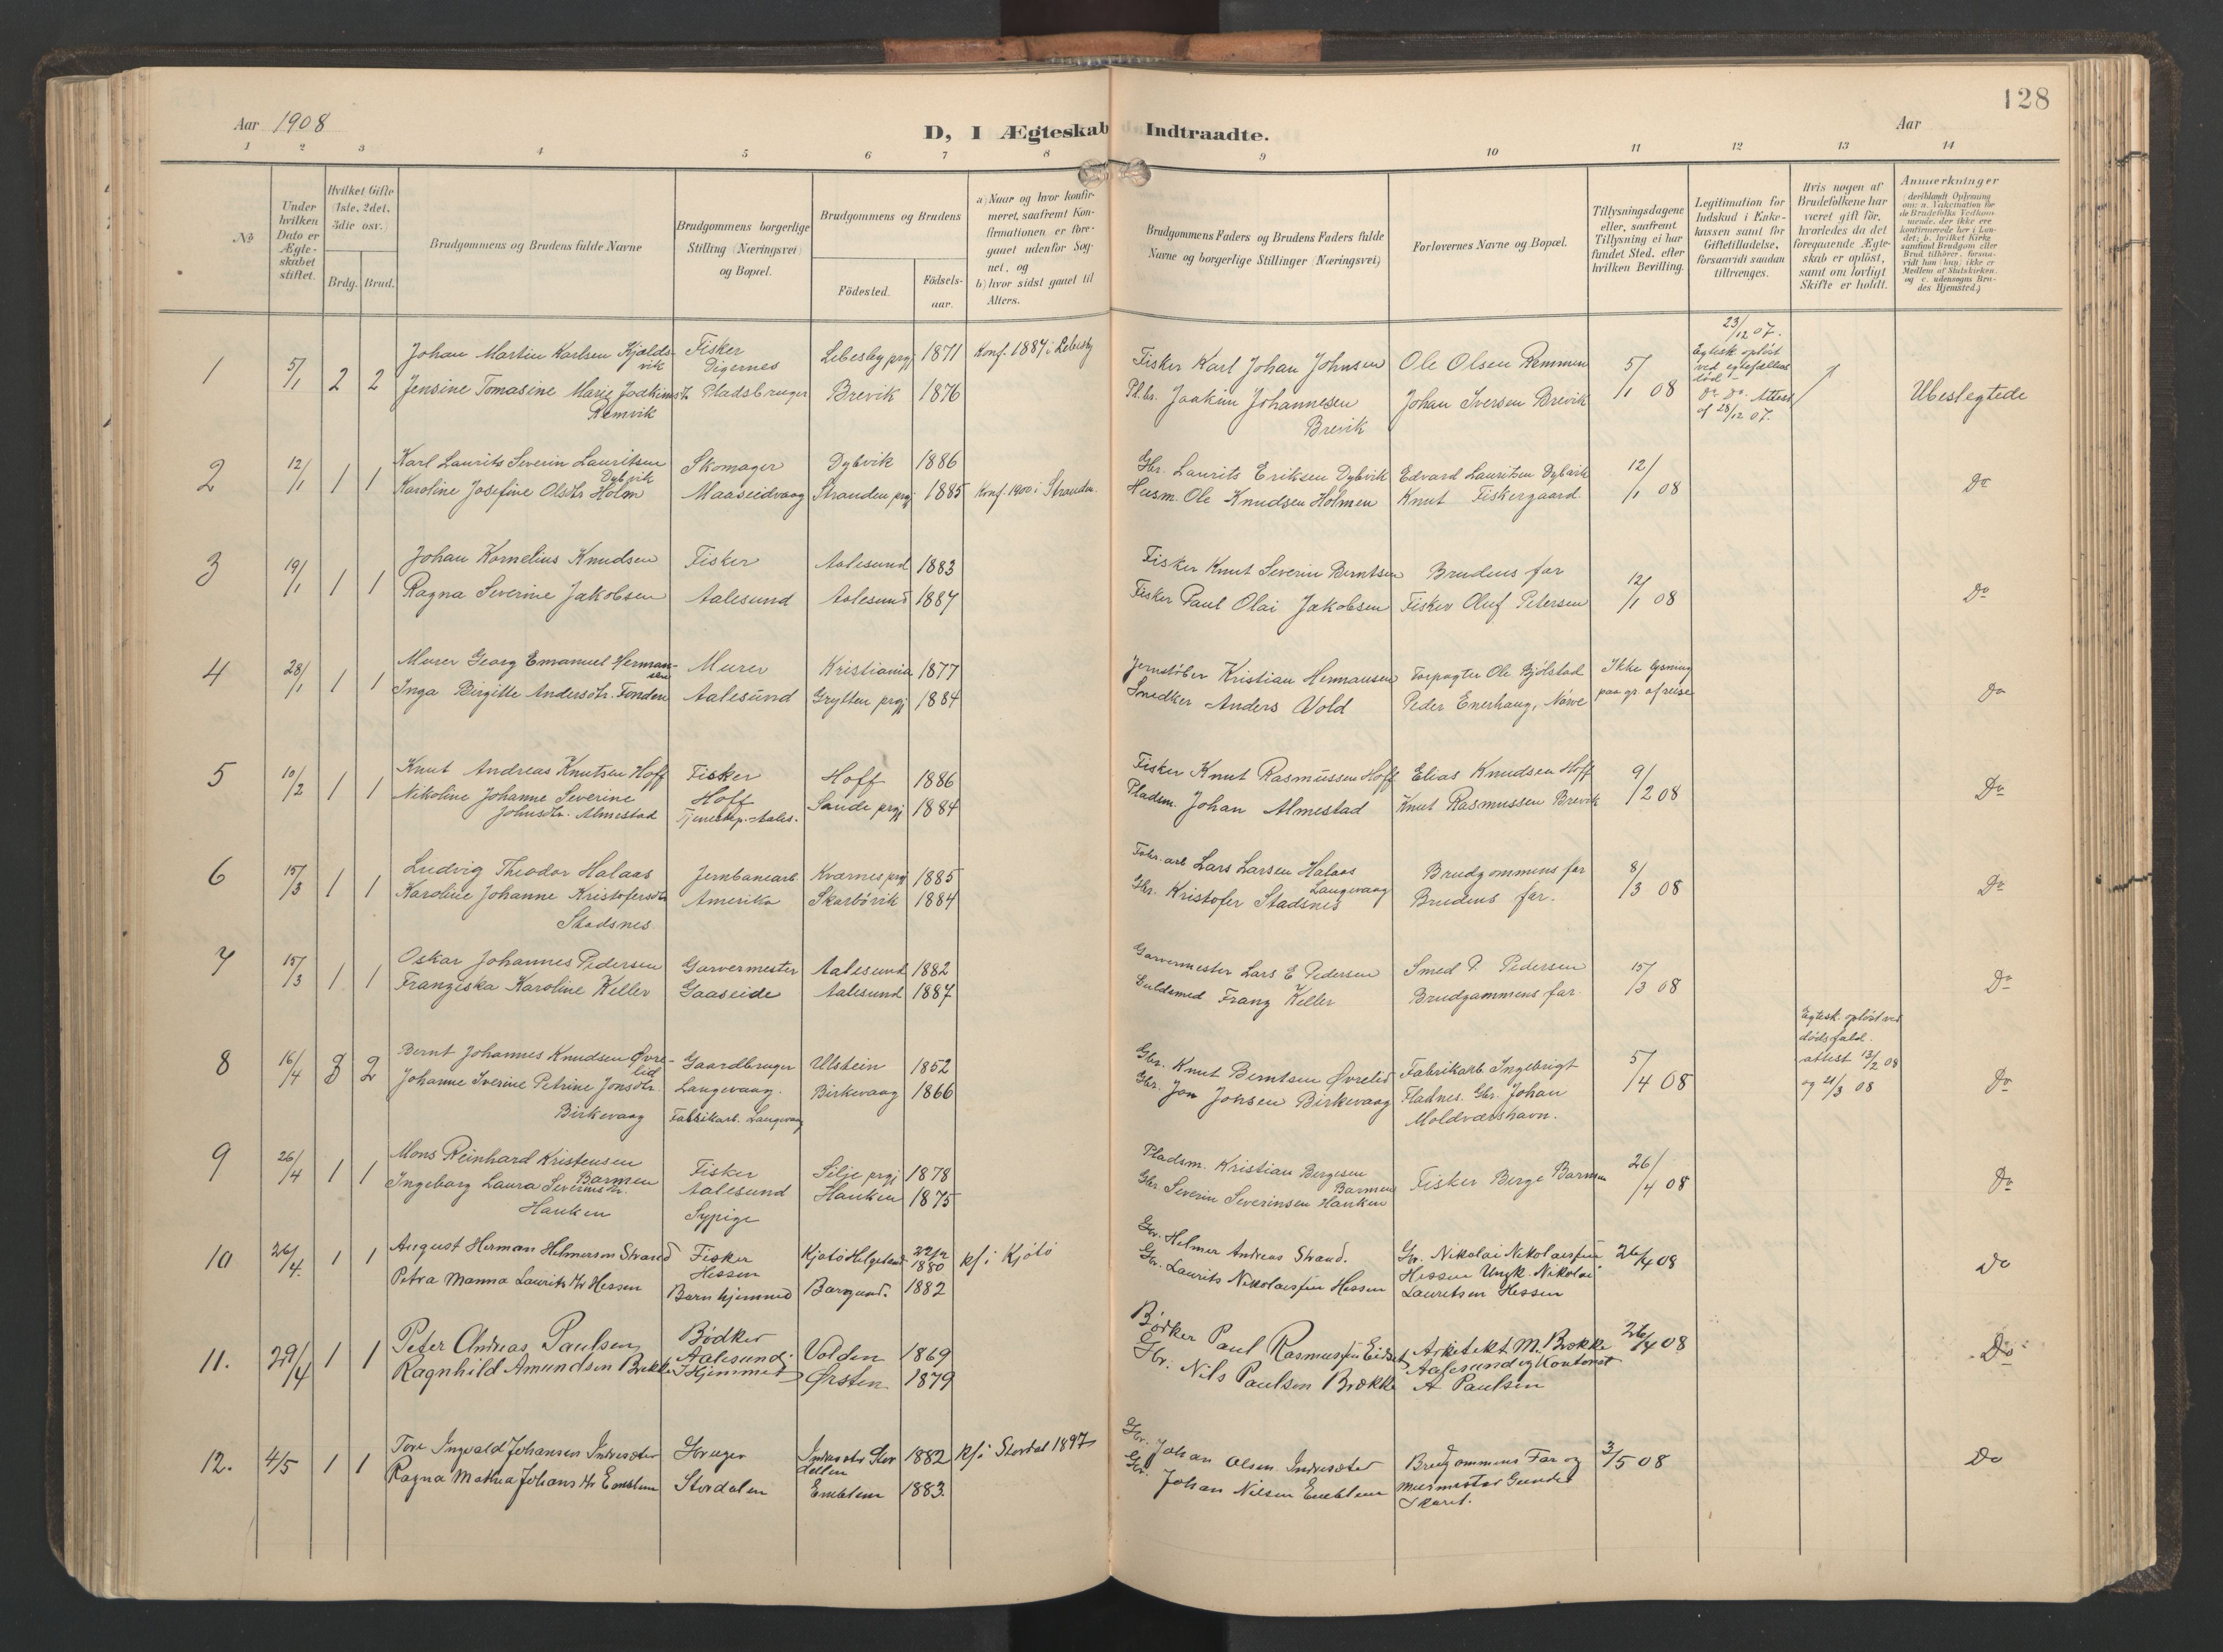 128
Aar 1908
Aar
D, I Ægteskab Indtraadte.
1 2 3 4 5 6 7 8 9 10 11 12 13 14
No
Under hvilken Dato er Ægteskabet stiftet.
Hvilket Gifte (1ste, 2det, 3die osv.)
Brdg. Brud.
Brudgommens og Brudens fulde Navne
Brudgommens borgerlige Stilling (Næringsvei) og Bopæl.
Brudgommens og Brudens
Födested.
Födselsaar.
a) Naar og hvor konfirmeret, saafremt Konfirmationen er foregaaet udenfor Sognet, og
b) hvor sidst gaaet til Alters.
Brudgommens Faders og Brudens Faders fulde Navne og borgerlige Stillinger (Næringsvei)
Forlovernes Navne og Bopæl.
Tillysningsdagene eller, saafremt Tillysning ei har fundet Sted, efter hvilken Bevilling.
Legitimation for Indskud i Enkekassen samt for Giftetilladelse, forsaavidt saadan tiltrænges.
Hvis nogen af Brudefolkene har været gift för, hvorledes da det foregaaende Ægteskab er oplöst, samt om lovligt Skifte er holdt.
Anmærkninger
(deriblandt Oplysning om: a. Vakcination for de Brudefolks Vedkommende, der ikke ere konfirmerede her i Landet; b. hvilket Kirkesamfund Brudgom eller Brud tilhörer, forsaavidt han (hun) ikke er Medlem af Statskirken, og c. udensogns Brudes Hjemsted.)
1 5/1 2 2 Johan Martin Karlsen Kjöldsvik Fisker Digernes Lebesby prgj 1871 Konf. 1887 i Lebesby Fisker Karl Johan Johnsen Ole Olsen Remmen 5/1 08 23/12 07. Egtesk. opløst ved egtefællens død - Ubeslegtede
Jensine Tomasine Marie Joakimsdtr Remvik Pladsbruger Brevik 1876 Pl.br. Joakim Johannesen Brevik Johan Iversen Brevik Do Do. Attest af 28/12 07.
2 12/1 1 1 Karl Laurits Severin Lauritsen Dybvik Skomager Dybvik 1886 Gbr. Laurits Eriksen Dybvik Edvard Lauritsen Dybvik 12/1 08 Do
Karoline Josefine Olsdtr Holm Maaseidvaag Stranden prgj 1885 Konf. 1900 i Stranden. Husm. Ole Knudsen Holmen Knut Fiskergaard
3 19/1 1 1 Johan Kornelius Knudsen Fisker Aalesund 1883 Fisker Knut Severin Berntsen Brudens far 12/1 08 Do
Ragna Severine Jakobsen Aalesund Aalesund 1887 Fisker Paul Olai Jakobsen Fisker Oluf Petersen
4 28/1 1 1 Murer Georg Emanuel Hermansen Murer Kristiania 1877 Jernstøber Kristian Hermansen Forpagter Ole Bjölstad Ikke lysning Do
Inga Birgitte Andersdtr. Fonden Aalesund Grytten prgj 1884 Snedker Anders Vold Peder Enerhaug, Nörve paa gr. af reise
5 10/2 1 1 Knut Andreas Knutsen Hoff Fisker Hoff Hoff 1886 Fisker Knut Rasmussen Hoff Elias Knudsen Hoff 9/2 08 Do
Nikoline Johanne Severine Johnsdtr. Almestad Tjenestep. Aales. Sande prgj 1884 Pladsm. Johan Almestad Knut Rasmussen Brevik
6 15/3 1 1 Ludvig Theodor Halaas Jernbanearb Kværnes prgj 1885 Fabr. arb Lars Larsen Halaas Langevaag Brudgommens far 8/3 08 Do
Karoline Johanne Kristofersdtr Stadsnes Amerika Skarbövik 1884 Gbr. Kristofer Stadsnes Brudens far.
7 15/3 1 1 Oskar Johannes Pedersen Garvermester Aalesund 1882 Garvermester Lars E. Pedersen Smed P. Pedersen 15/3 08 Do
Franziska Karoline Keller Gaaseide Aalesund 1887 Guldsmed Franz Keller Brudgommens far.
8 16/4 3 2 Bernt Johannes Knudsen Øvrelid Gaardbruger Langevaag. Ulstein 1852 Gbr. Knut Berntsen Øvrelid Fabrikarb Ingebrigt Fladnes. 5/4 08 Egtesk. opløst ved dødsfald. attest 13/2 08 og 21/3 08 Do
Johanne Iverine Petrine Jonsdtr. Birkevaag Fabrikarb. Langevaag Birkevaag 1866 Gbr. Jon Jonsen Birkevaag Gbr. Johan Moldværshavn.
9 26/4 1 1 Mons Reinhard Kristensen Barmen Fisker Aalesund Silje prgj 1878 Pladsm. Kristian Bergesen Barmen Fisker Berge Barmen 26/4 08 Do
Ingeborg Laura Severinsdtr. Hanken Sypige Hanken 1875 Gbr. Severin Severinsen Hanken
10 26/4. 1 1 August Herman Helmersen Strand Fisker Hessen Kjøtö Helgeland 1880 kf i Kjötö Gbr. Helmer Andreas Strand. Gbr. Nikolai Nikolaisen Hessen 26/4 08 Do
Petra Manna Lauritsdtr Hessen Barnhjemmed Borgund. 1882 Gbr. Laurits Nikolaisen Hessen Ungk. Nikolai Lauritsen Hessen
11. 29/4 1 1 Peter Andreas Paulsen Bödker Aalesund Volden 1869 Bödker Paul Rasmussen Eidset Arkitekt M. Brekke Aalesund og Kontorist 26/4 08 Do
Ragnhild Amundsen Brekke I Hjemmet Ørsten 1879 Gbr. Nils Paulsen Brekke A Paulsen
12. 4/5 1 1 Tore Ingvald Johansen Indresæter Gbruger Indresæter Stordallen 1882 kf i Stordal 1897 Gbr. Johan Olsen Indresæter Brudgommens Far og 3/5 08 Do
Ragna Mathea Johansdtr Emblem Stordalen Emblem 1883. Gbr. Johan Nilsen Emblem Murmester Skaret.